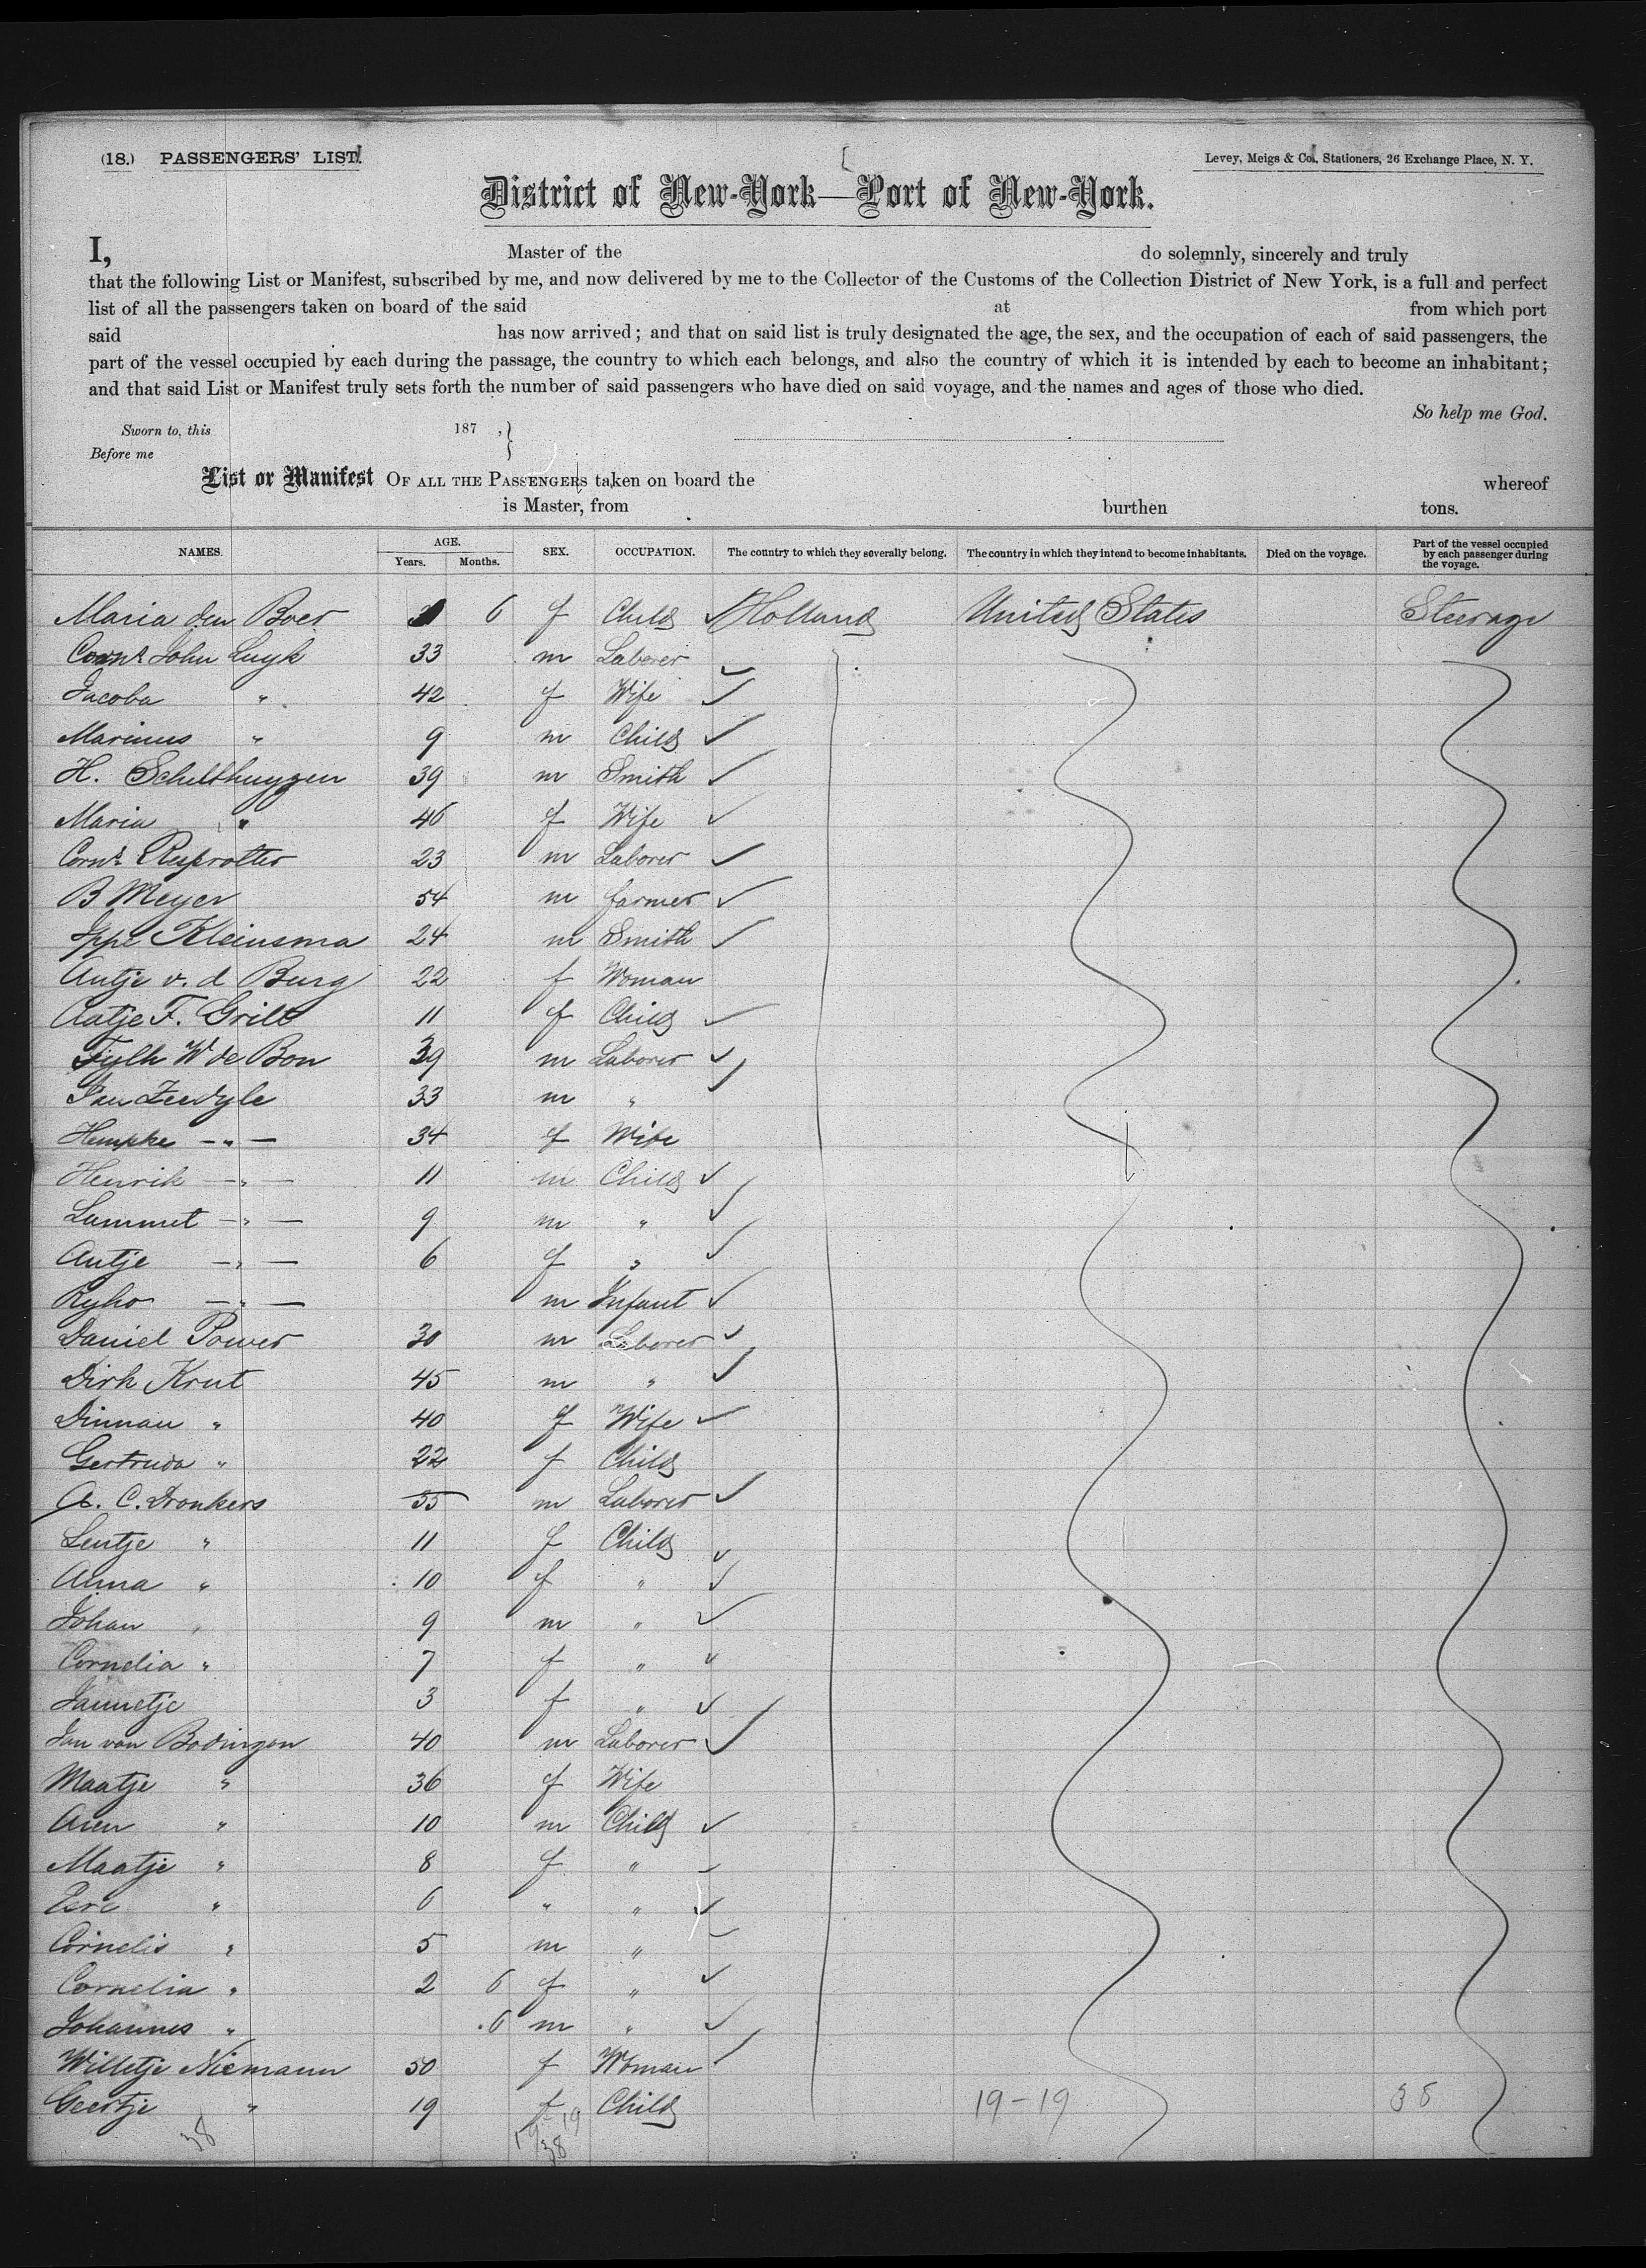 (18.) PASSENGERS' LIST. Levey, Meigs & Co., Stationers, 26 Exchange Place, N. Y.
District of New-York—Port of New-York.
I, Master of the do solemnly, sincerely and truly
that the following List or Manifest, subscribed by me, and now delivered by me to the Collector of the Customs of the Collection District of New York, is a full and perfect
list of all the passengers taken on board of the said at from which port
said has now arrived; and that on said list is truly designated the age, the sex, and the occupation of each of said passengers, the
part of the vessel occupied by each during the passage, the country to which each belongs, and also the country of which it is intended by each to become an inhabitant;
and that said List or Manifest truly sets forth the number of said passengers who have died on said voyage, and the names and ages of those who died.
So help me God.
Sworn to, this 187 ,}
Before me
List or Manifest OF ALL THE PASSENGERS taken on board the whereof
is Master, from burthen tons.
NAMES. AGE. Years. Months. SEX. OCCUPATION. The country to which they severally belong. The country in which they intend to become inhabitants. Died on the voyage. Part of the vessel occupied by each passenger during the voyage.
Maria den Boer 6 f Child Holland United States Steerage
Corns John Luyk 33 m Laborer
Jacoba " 42 f Wife
Marinus " 9 m Child
H. Schelthuyzen 39 m Smith
Maria " 46 f Wife
Corns 23 m Laborer
B Meyer 54 m farmer
Ippe Kleinsma 24 m Smith
Antje v. d Burg 22 f Woman
Aatje F. Grilt 11 f Child
W de Bon 39 m Laborer
Jan Zeedyle 33 m "
Hempke — " — 34 f Wife
Henrik — " — 11 m Child
Lammet — " — 9 m "
Antje — " — 6 f "
Ryho — " — m Infant
Daniel Power 30 m Laborer
Dirk Krut 45 m "
Dinnau " 40 f Wife
Gertruda " 22 f Child
A. C. Dronkers 55 m Laborer
Lentje " 11 f Child
Anna " 10 f "
Johan " 9 m "
Cornelia " 7 f "
Jannetje 3 f "
Jan van Bodingen 40 m Laborer
Maatje " 36 f Wife
Aren " 10 m Child
Maatje " 8 f "
" 6 " "
Cornelis " 5 m "
Cornelia " 2 6 f "
Johannes " 6 m "
Willetje Niemann 50 f Woman
Geertje " 19 f Child 19-19 38
38 19-19
38